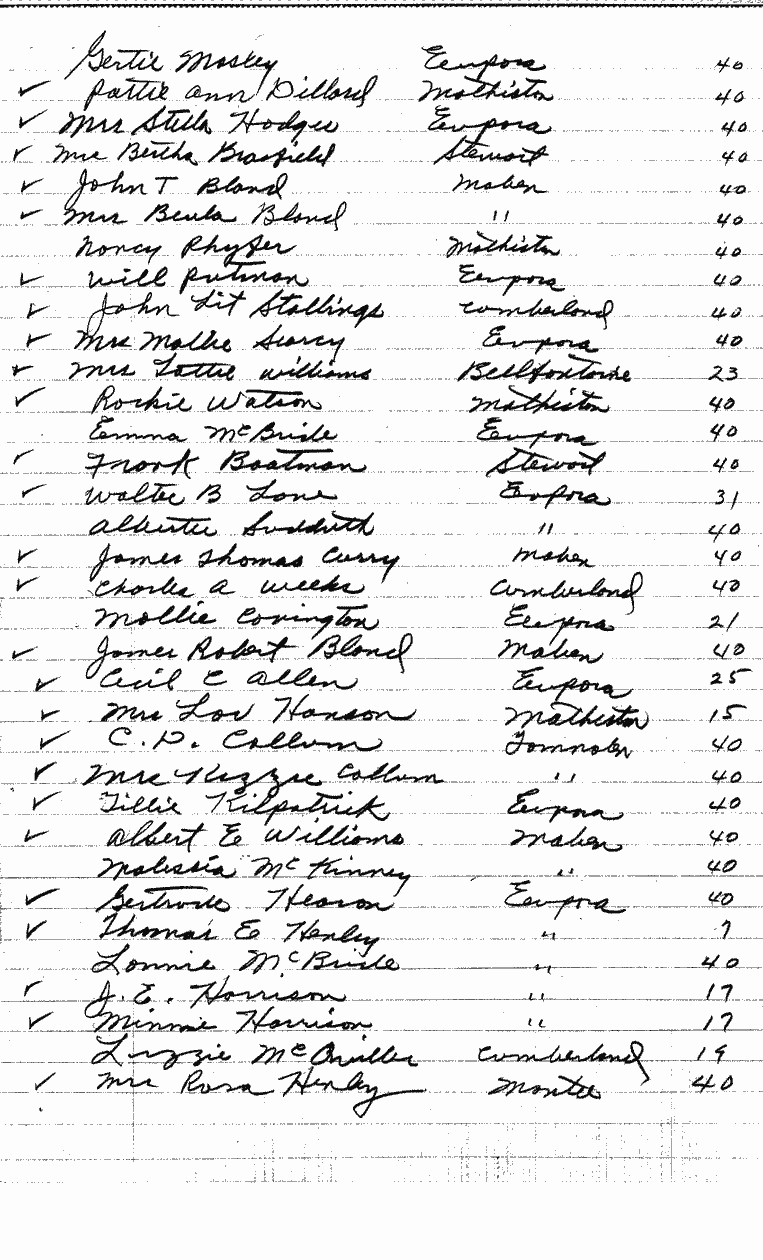 Gertie Mosley Eupora 40
✓ Pattie Ann Dillard Mathiston 40
✓ Mrs Stella Hodges Eupora 40
✓ Mrs Bertha Brasfield Stewart 40
✓ John T Bland Maben 40
✓ Mrs Beula Bland " 40
Nancy Phyfer Mathiston 40
✓ Will Putman Eupora 40
✓ John Lit Stallings Cumberland 40
✓ Mrs Mollie Searcy Eupora 40
✓ Mrs Lottie Williams Bellfontaine 23
✓ Rockie Watson Mathiston 40
Emma McBride Eupora 40
✓ Frank Boatman Stewart 40
✓ Walter B Lane Eupora 31
Albertie Suddeth " 40
✓ James Thomas Curry Maben 40
✓ Charles A Weeks Cumberland 40
Mollie Covington Eupora 21
✓ James Robert Bland Maben 40
✓ Cecil C Allen Eupora 25
✓ Mrs Lou Hanson Mathiston 15
✓ C.D. Collum Tomnolen 40
✓ Mrs Kizzie Collum " 40
✓ Tillie Kilpatrick Eupora 40
✓ Albert E Williams Maben 40
Malissia McKinney " 40
✓ Gertrude Hearon Eupora 40
✓ Thomas E Henley " 7
Lonnie McBride " 40
✓ J.E. Harrison " 17
✓ Minnie Harrison " 17
Lizzie Cumberland 19
✓ Mrs Rosa Henley Montee 40